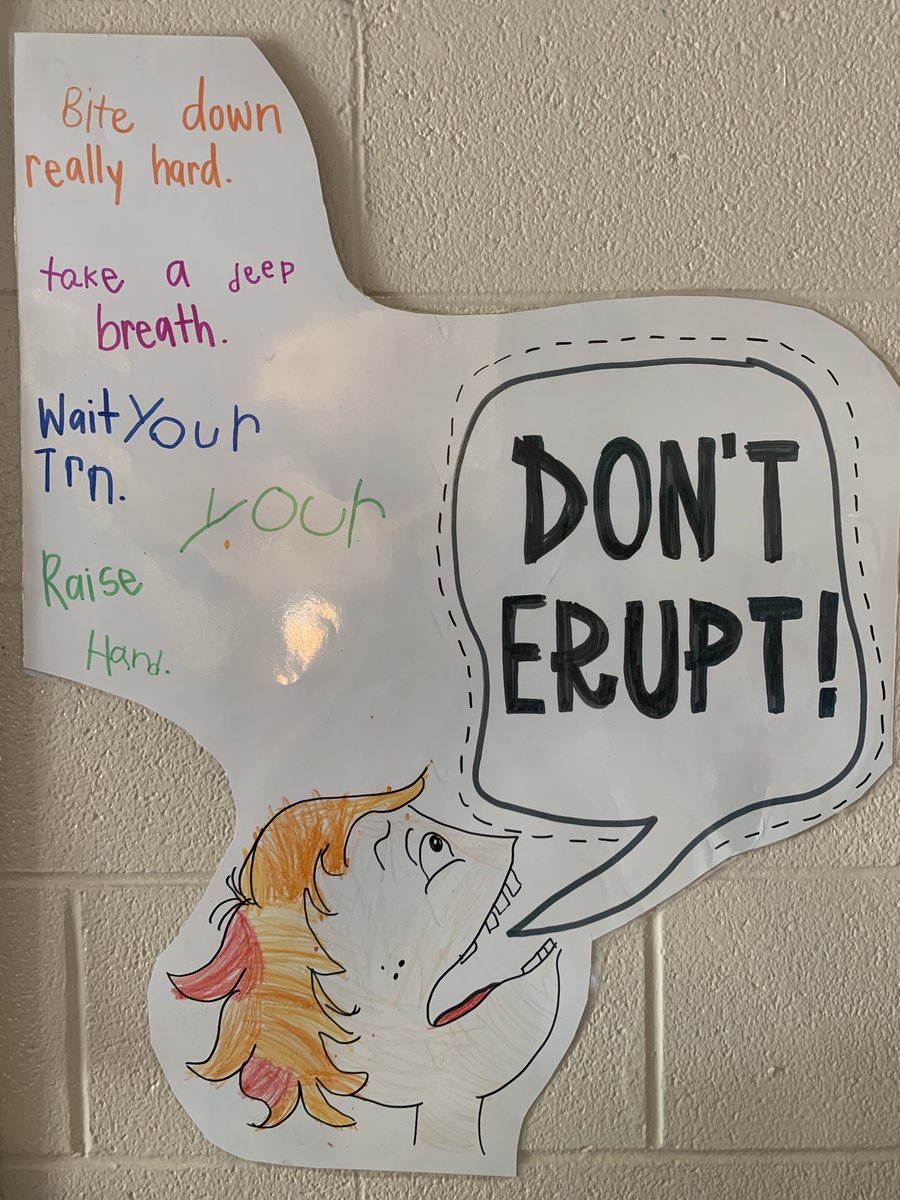 Bite down
really hard.
take a deep
breath.
Wait Your
Trn.
your
Raise
Hand.
DON'T
ERUPT!